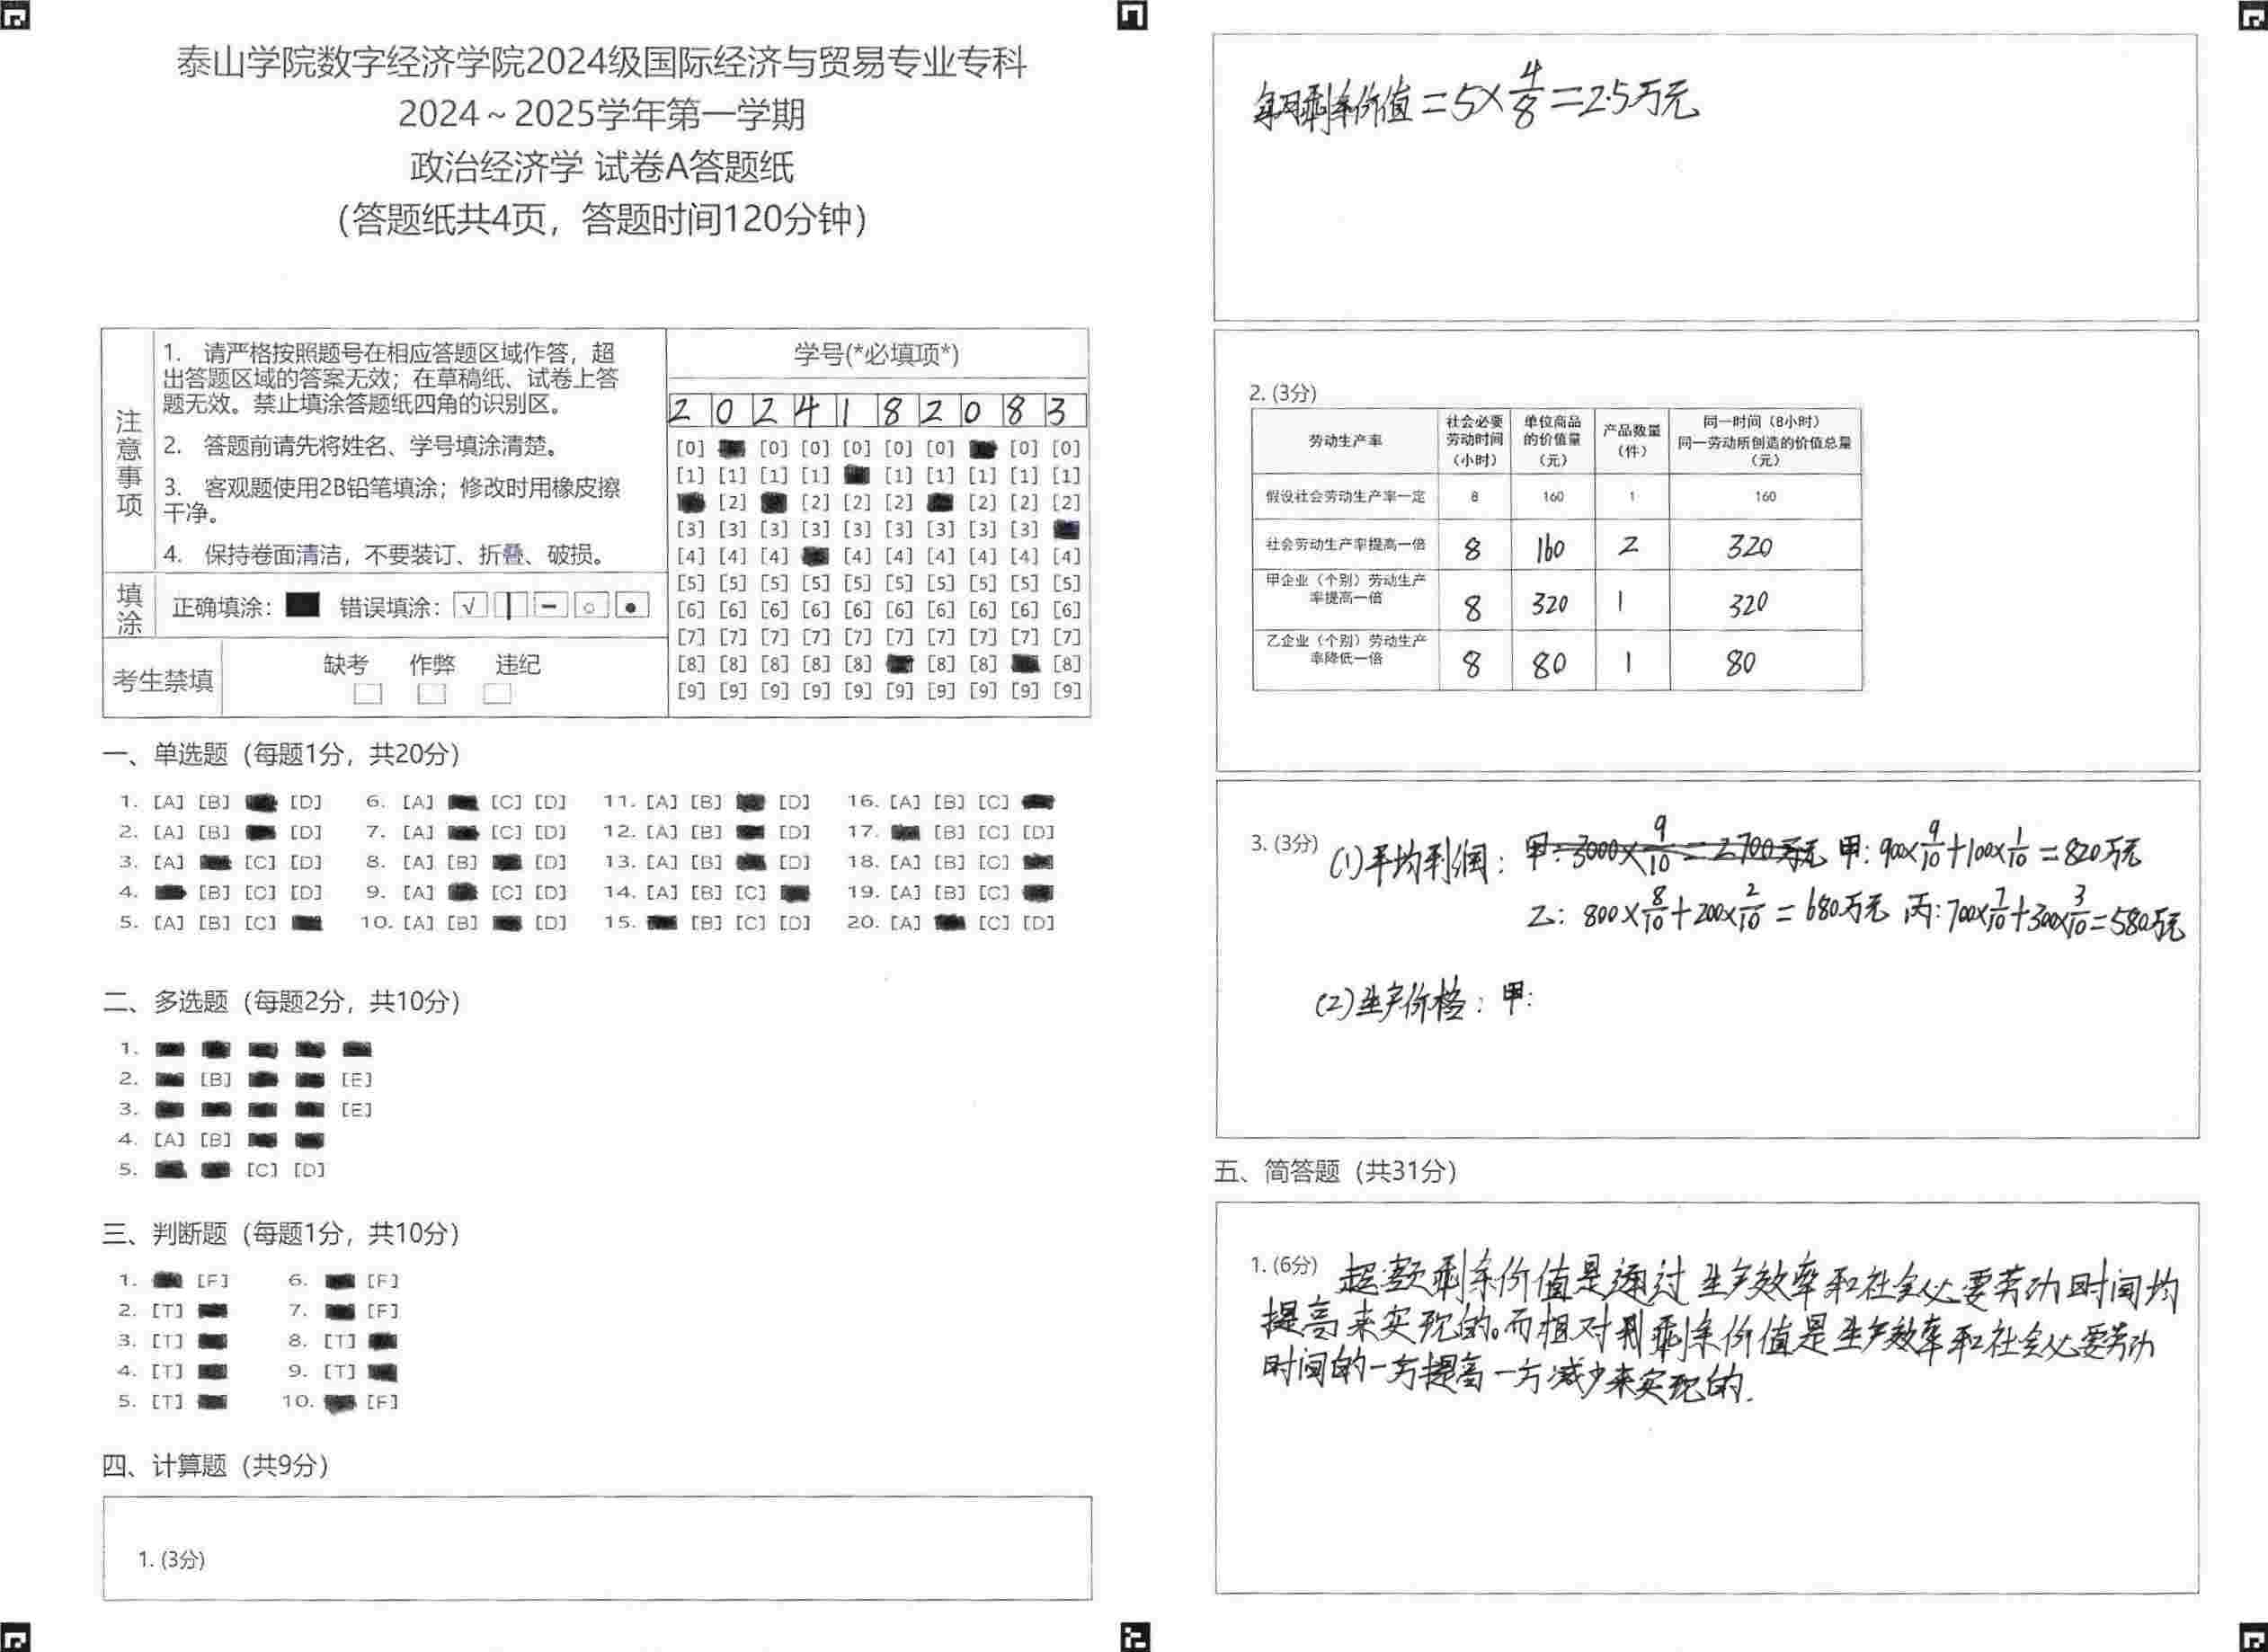 泰山学院数字经济学院2024级国际经济与贸易专业专科
2024～2025学年第一学期
政治经济学 试卷A答题纸
（答题纸共4页，答题时间120分钟）
注意事项
1. 请严格按照题号在相应答题区域作答，超
出答题区域的答案无效；在草稿纸、试卷上答
题无效。禁止填涂答题纸四角的识别区。
2. 答题前请先将姓名、学号填涂清楚。
3. 客观题使用2B铅笔填涂；修改时用橡皮擦
干净。
4. 保持卷面清洁，不要装订、折叠、破损。
填涂
正确填涂： 错误填涂：
考生禁填
缺考 作弊 违纪
学号(*必填项*)
2 0 2 4 1 8 2 0 8 3
[0] [0] [0] [0] [0] [0] [0] [0]
[1] [1] [1] [1] [1] [1] [1] [1] [1]
[2] [2] [2] [2] [2] [2] [2]
[3] [3] [3] [3] [3] [3] [3] [3] [3]
[4] [4] [4] [4] [4] [4] [4] [4] [4]
[5] [5] [5] [5] [5] [5] [5] [5] [5] [5]
[6] [6] [6] [6] [6] [6] [6] [6] [6] [6]
[7] [7] [7] [7] [7] [7] [7] [7] [7] [7]
[8] [8] [8] [8] [8] [8] [8] [8]
[9] [9] [9] [9] [9] [9] [9] [9] [9] [9]
一、单选题（每题1分，共20分）
1. [A] [B] [D] 6. [A] [C] [D] 11. [A] [B] [D] 16. [A] [B] [C]
2. [A] [B] [D] 7. [A] [C] [D] 12. [A] [B] [D] 17. [B] [C] [D]
3. [A] [C] [D] 8. [A] [B] [D] 13. [A] [B] [D] 18. [A] [B] [C]
4. [B] [C] [D] 9. [A] [C] [D] 14. [A] [B] [C] 19. [A] [B] [C]
5. [A] [B] [C] 10. [A] [B] [D] 15. [B] [C] [D] 20. [A] [C] [D]
二、多选题（每题2分，共10分）
1.
2. [B] [E]
3. [E]
4. [A] [B]
5. [C] [D]
三、判断题（每题1分，共10分）
1. [F] 6. [F]
2. [T] 7. [F]
3. [T] 8. [T]
4. [T] 9. [T]
5. [T] 10. [F]
四、计算题（共9分）
1. (3分)
每月剩余价值=5×4/8=2.5万元
2. (3分)
劳动生产率 社会必要劳动时间（小时） 单位商品的价值量（元） 产品数量（件） 同一时间（8小时）同一劳动所创造的价值总量（元）
假设社会劳动生产率一定 8 160 1 160
社会劳动生产率提高一倍 8 160 2 320
甲企业（个别）劳动生产率提高一倍 8 320 1 320
乙企业（个别）劳动生产率降低一倍 8 80 1 80
3. (3分) (1)平均利润：甲：3000×9/10=2700万元 甲：900×9/10+100×1/10=820万元
乙：800×8/10+200×2/10=680万元 丙：700×7/10+300×3/10=580万元
(2)生产价格：甲：
五、简答题（共31分）
1. (6分) 超额剩余价值是通过生产效率和社会必要劳动时间均
提高来实现的。而相对剩余价值是生产效率和社会必要劳动
时间的一方提高一方减少来实现的.